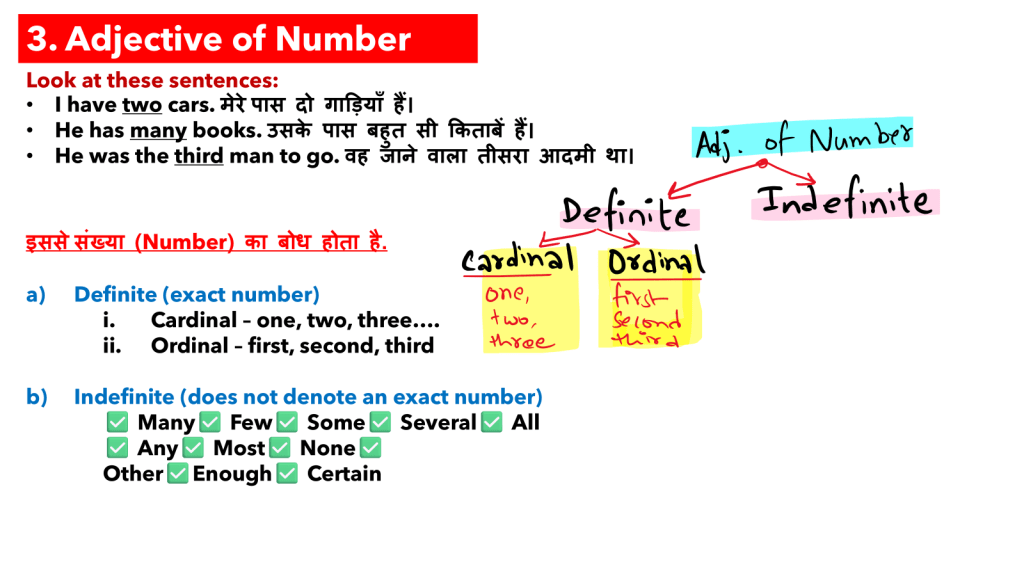 3. Adjective of Number
Look at these sentences:
• I have two cars. मेरे पास दो गाड़ियाँ हैं।
• He has many books. उसके पास बहुत सी किताबें हैं।
• He was the third man to go. वह जाने वाला तीसरा आदमी था।
Adj. of Number
Definite Indefinite
इससे संख्या (Number) का बोध होता है.
Cardinal Ordinal
one, first
two, second
three third
a) Definite (exact number)
i. Cardinal – one, two, three....
ii. Ordinal – first, second, third
b) Indefinite (does not denote an exact number)
✅ Many ✅ Few ✅ Some ✅ Several ✅ All
✅ Any ✅ Most ✅ None ✅
Other ✅ Enough ✅ Certain